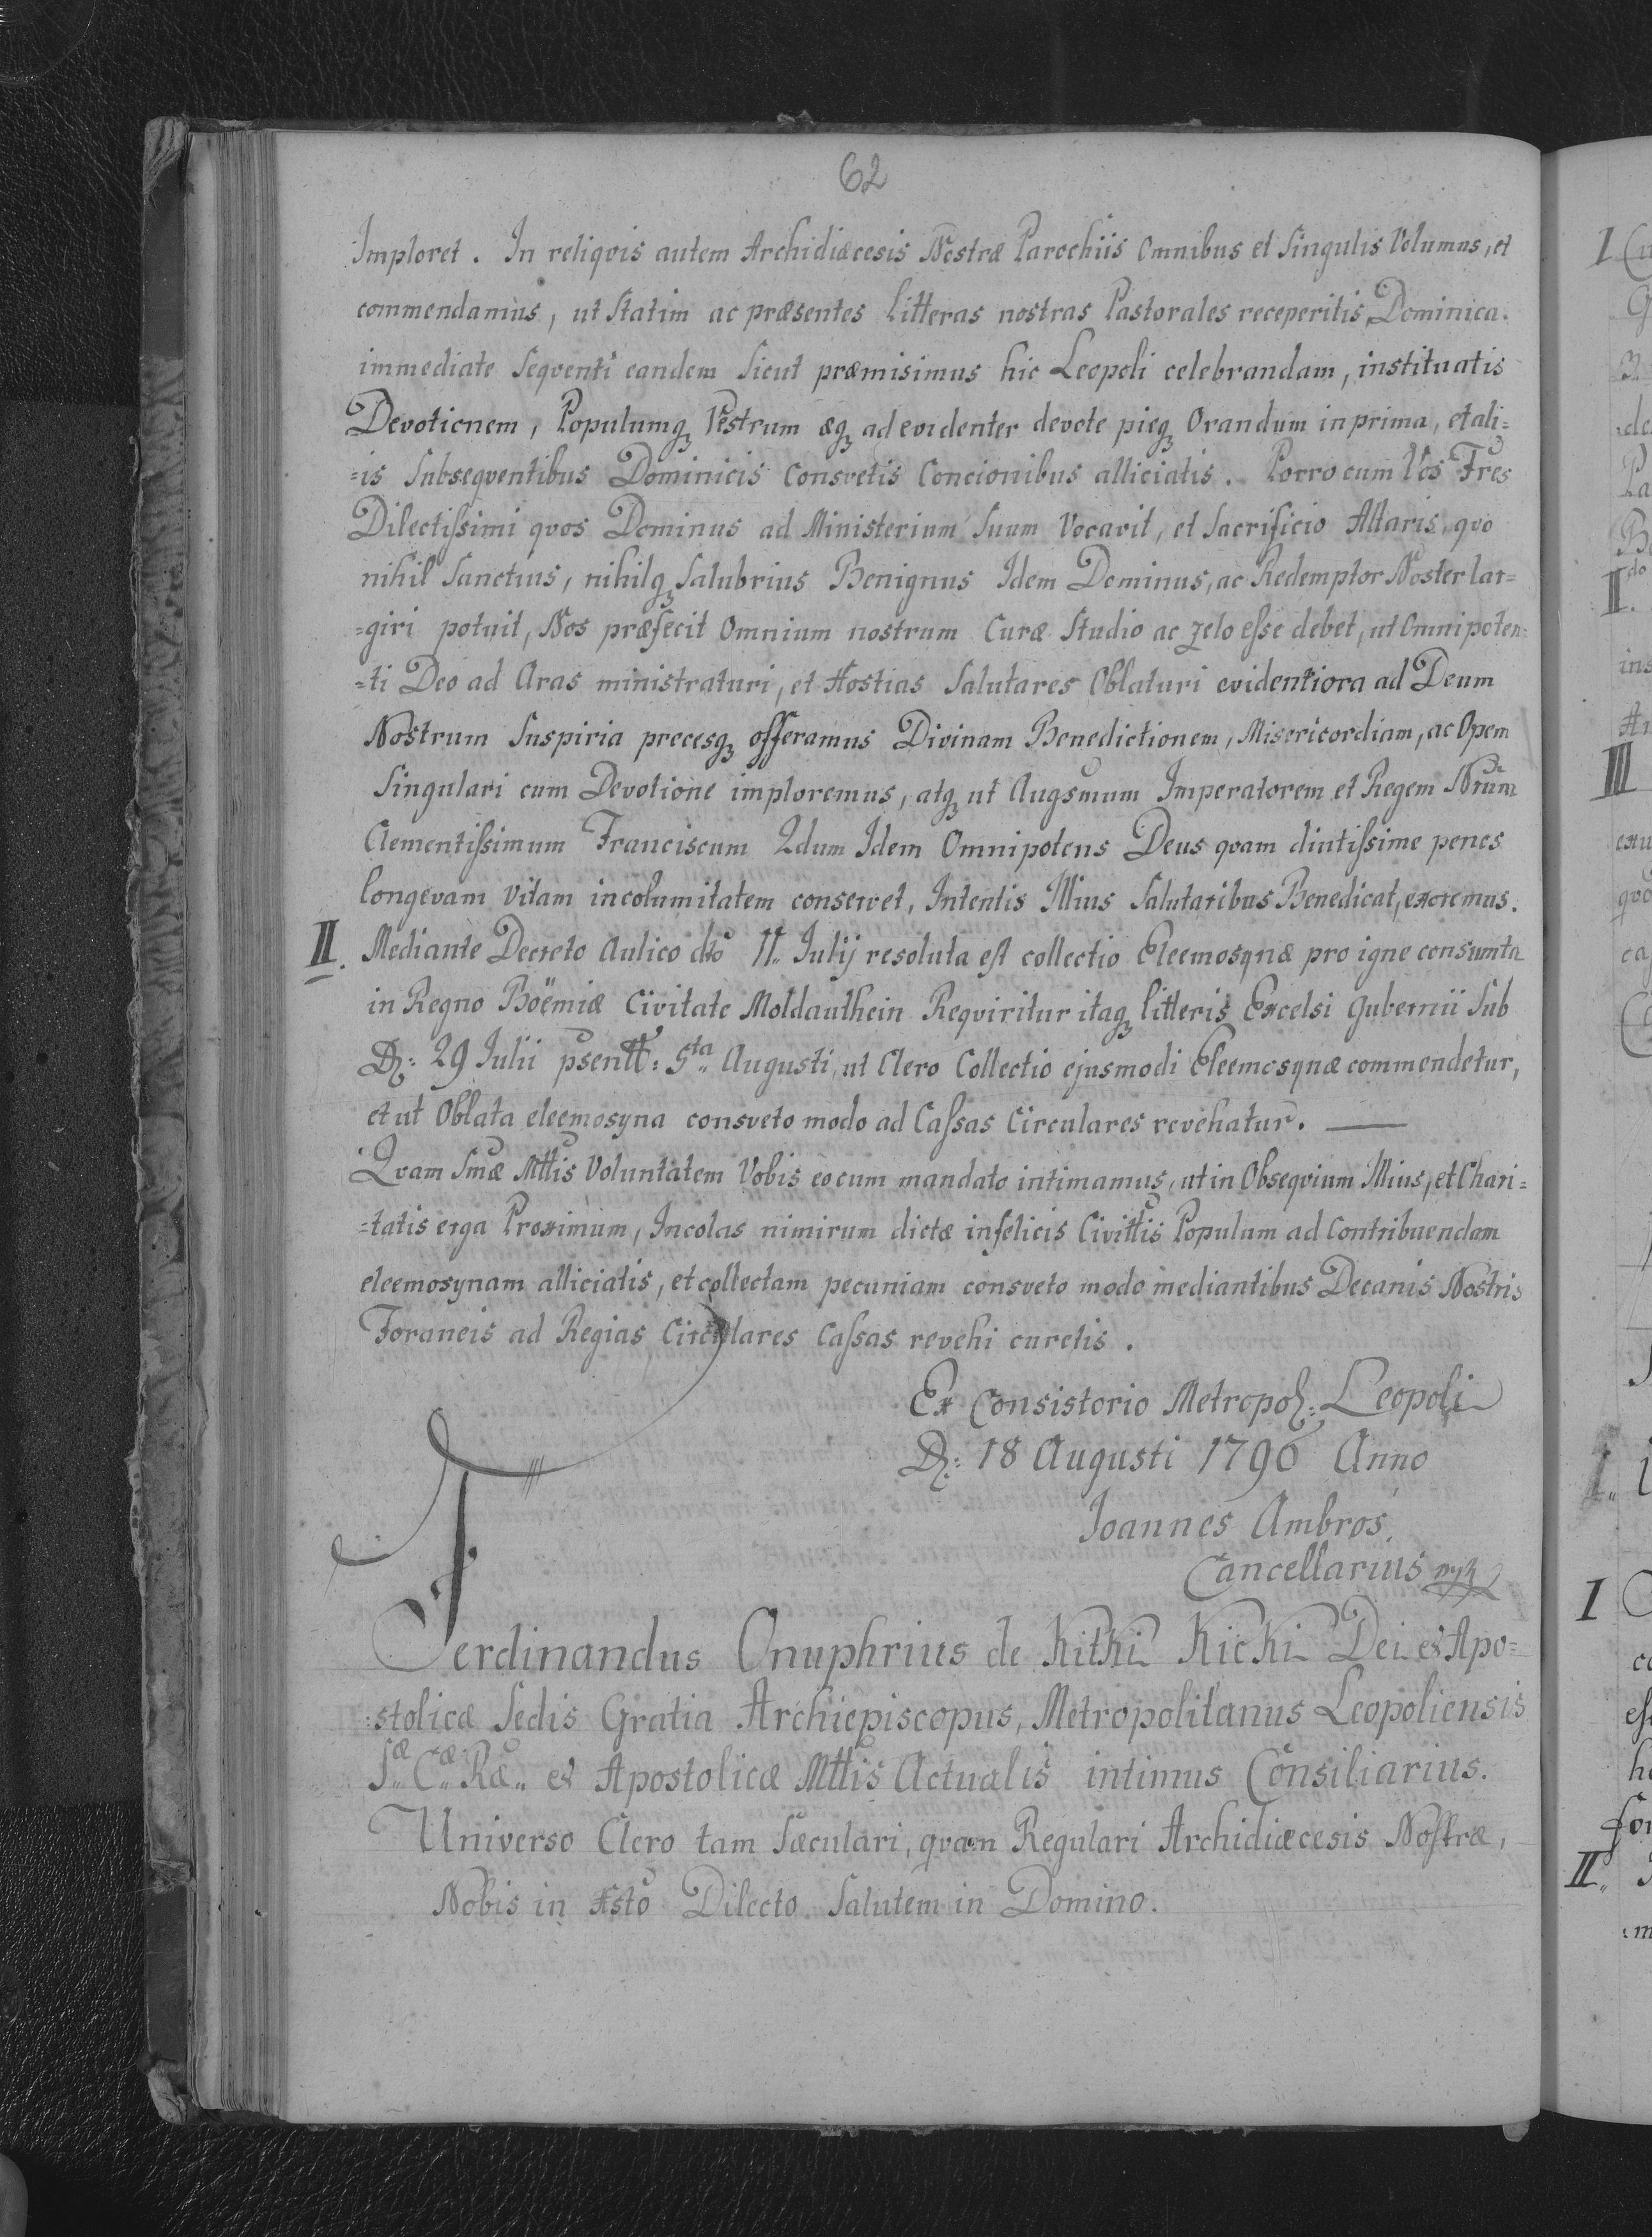 62
Imploret. In reliqvis autem Archidiæcesis Nostræ Parochiis Omnibus et Singulis Volumus, et
commendamus, ut Statim ac præsentes Litteras nostras Pastorales receperitis, Dominica.
immediate Seqventi eandem Sicut præmisimus hic Leopoli celebrandam, instituatis
Devotionem, Populumqꝫ Vestrum æqꝫ ad evidenter devote pieqꝫ Orandum in prima, et ali=
=is Subseqventibus Dominicis Consvetis Concionibus alliciatis. Porro cum Vos Fres
Dilectißimi qvos Dominus ad Ministerium Suum Vocavit, et Sacrificio Altaris, qvo
nihil Sanctius, nihilqꝫ Salubrius Benignus Idem Dominus, ac Redemptor Noster lar=
=giri potuit, Nos præfecit Omnium nostrum Curæ Studio ac zelo eße debet, ut Omnipoten=
=ti Deo ad Aras ministraturi, et Hostias Salutares Oblaturi evidentiora ad Deum
Nostrum Suspiria precesqꝫ offeramus Divinam Benedictionem, Misericordiam, ac Opem
Singulari cum Devotione imploremus, atqꝫ ut Augsmum Imperatorem et Regem Nrum
Clementißimum Franciscum 2dum Idem Omnipotens Deus qvam diutißime penes
longevam Vitam incolumitatem conservet, Intentis Illius Salutaribus Benedicat, exoremus.
II. Mediante Decreto Aulico dtto 11. Julij resoluta est collectio Eleemosynæ pro igne consumta
in Regno Böemiæ Civitate Moldauthein Reqviritur itaqꝫ litteris Excelsi Gubernii Sub
D: 29 Julii psentt: 5ta Augusti, ut Clero Collectio ejusmodi Eleemosynæ commendetur,
et ut Oblata eleemosyna consveto modo ad Caßas Circulares revehatur. —
Qvam Smæ Mttis Voluntatem Vobis eo cum mandato intimamus, ut in Obseqvium Illius, et Chari=
=tatis erga Proximum, Incolas nimirum dictæ infelicis Civittis Populum ad Contribuendam
eleemosynam alliciatis, et collectam pecuniam consveto modo mediantibus Decanis Nostris
Foraneis ad Regias Circulares Caßas revehi curetis.
Ex Consistorio Metropol: Leopoli
D: 18 Augusti 1796 Anno
Joannes Ambros
Cancellarius mp
Ferdinandus Onuphrius de Kitki Kicki Dei et Apo=
=stolicæ Sedis Gratia Archiepiscopus, Metropolitanus Leopoliensis
Sæ Cæ Ræ et Apostolicæ Mttis Actualis intimus Consiliarius.
Universo Clero tam Sæculari, qvam Regulari Archidiæcesis Nostræ,
Nobis in Xsto Dilecto Salutem in Domino.